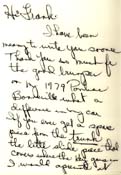 Hi Frank:
I have been
meaning to write you sooner
Thank you so much for
the good trumper
on my 1979 Pontiac
Bonneville what a
difference in my car
If you ever get a spare
piece for the trunk
the little slide piece that
comes where the key goes in
I would appreciate it